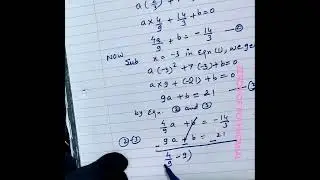 a × 4/9 + 14/3 + b = 0
4a/9 + b = - 14/3 — ②
Now
Sub x = -3 in Eqn (1), we ge
a(-3)² + 7(-3) + b = 0
a(9) + (-21) + b = 0
9a + b = 21
by Eqn. ② and ③
4/9 a + b = - 14/3
②-③ 9a + b = 21
(4/9 - 9)